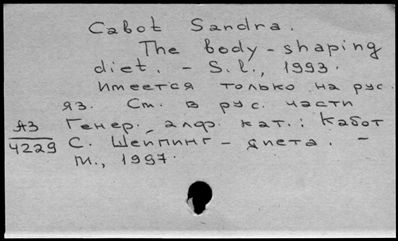 Cabot Sandra.
The body-shaping
diet. - S.l., 1993.
Имеется только на рус.
яз. См. в рус. части
Генер. алф. кат.: Кабот
С. Шейпинг-диета. -
М., 1997.
АЗ
4229